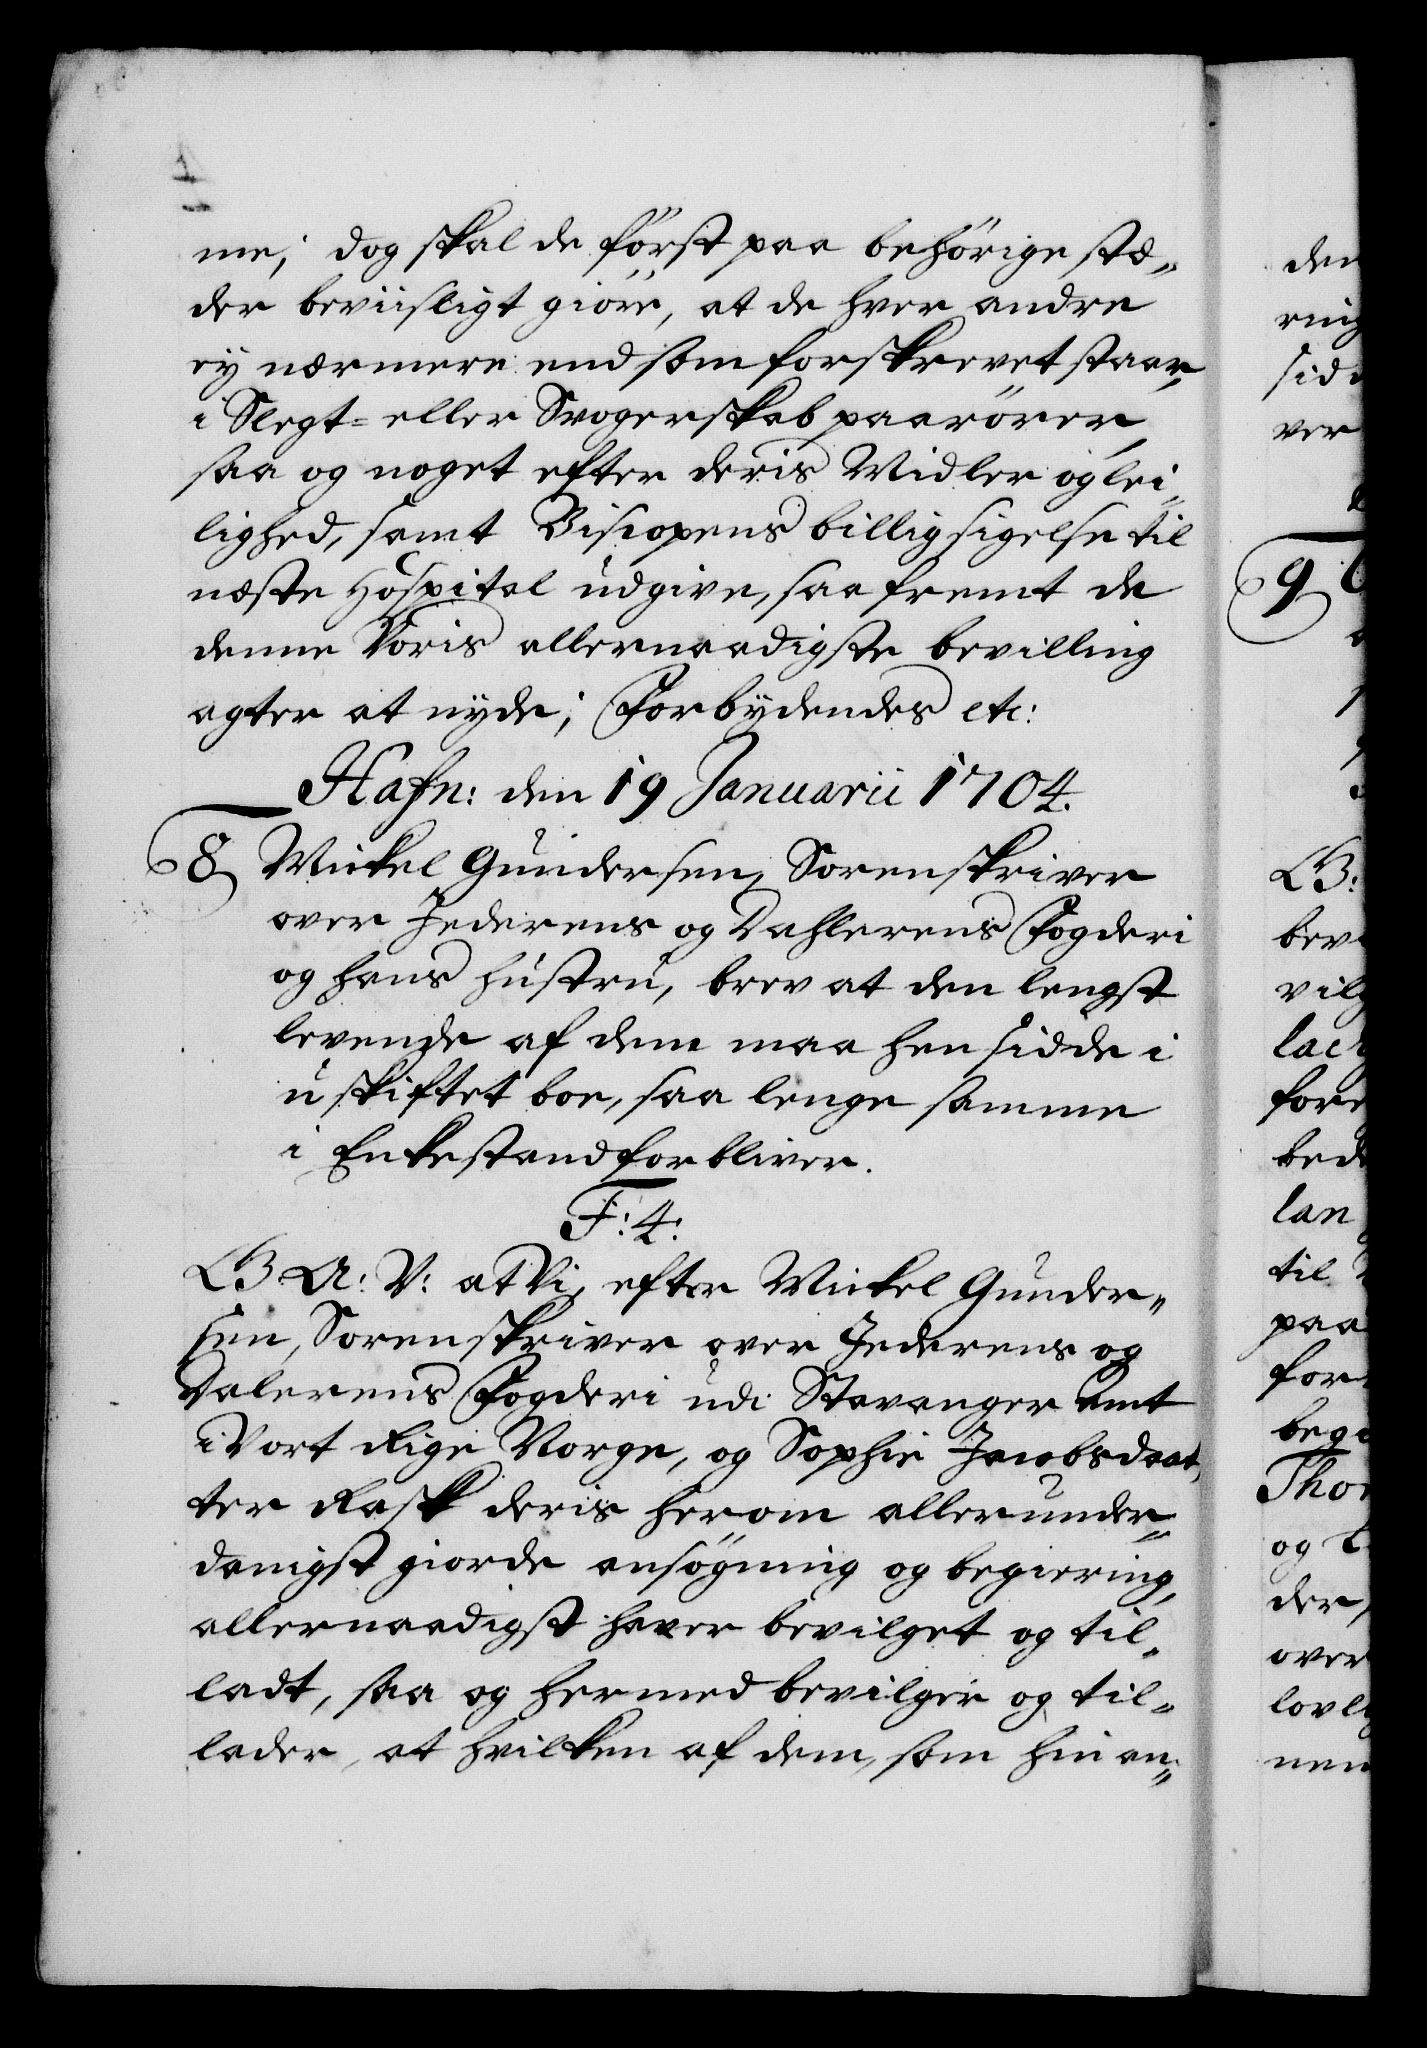 me; dog skal de först paa behörige stæ„
der beviisligt giöre, at de hver andre
ey nærmere end som forskrevet staar,
i Slegt= eller Svogerskab paarörer,
saa og noget efter deris Midler og lei„
lighed, samt Biscopens billigsigelse til
næste Hospital udgive, saa fremt de
denne Voris allernaadigste bevilling
agter at nyde; Forbydendes etc:
Hafn: den 19 Januarii 1704.
8 Mickel Gundersen, Sorenskriver
over Jederens og Dahlerens Fogderi
og hans hustru, brev at den lengst
levende af dem maa hensidde i
uskiftet boe, saa lenge samme
i Enkestand forbliver.
F: 4:
G: A: V: at Vi, efter Mickel Gunder„
sen, Sorenskriver over Jederens og
Dalerens Fogderi udi Stavanger amt
i Vort Rige Norge, og Sophie Jacobsdaat„
ter Rask deris herom allerunder„
danigst giorde ansögning og begiering,
allernaadigst haver bevilget og til„
ladt, saa og hermed bevilger og til„
lader, at hvilken af dem, som hin an„
den
ring
sid
ver
9
G:
bev
vilg
lad
fore
bed
lan
til
paa
for
beg
Thor
og
der,
over
lovl
nen